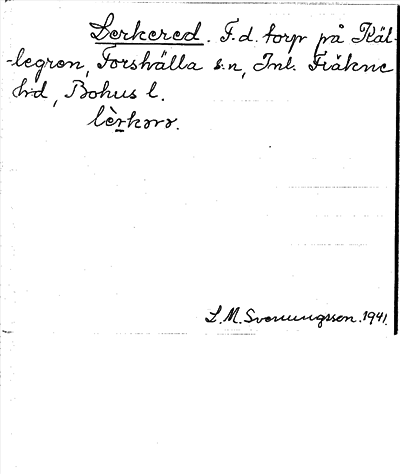 Lerkered. F.d. torp på Käl-
-legren, Forshälla s:n, Inl. Fräkne
hd, Bohus l.
lèrkərə.
L.M. Svenungsson. 1941.